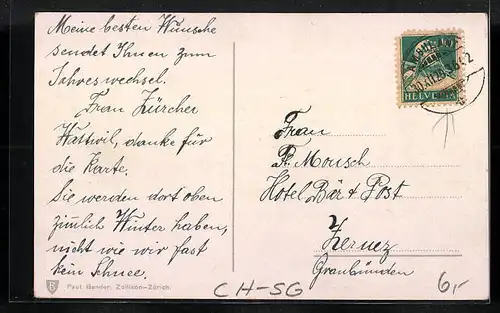 Meine besten Wünsche
sendet Ihnen zum
Jahreswechsel.
Frau Zürcher
Wattwil, danke für
die Karte.
Sie werden dort oben
zimlich Winter haben,
nicht wie wir fast
kein Schnee.
Paul Bender, Zollikon-Zürich.
HELVETIA
Frau
Hotel Bär & Post
Zernez
Graubünden
CH-SG
6,-